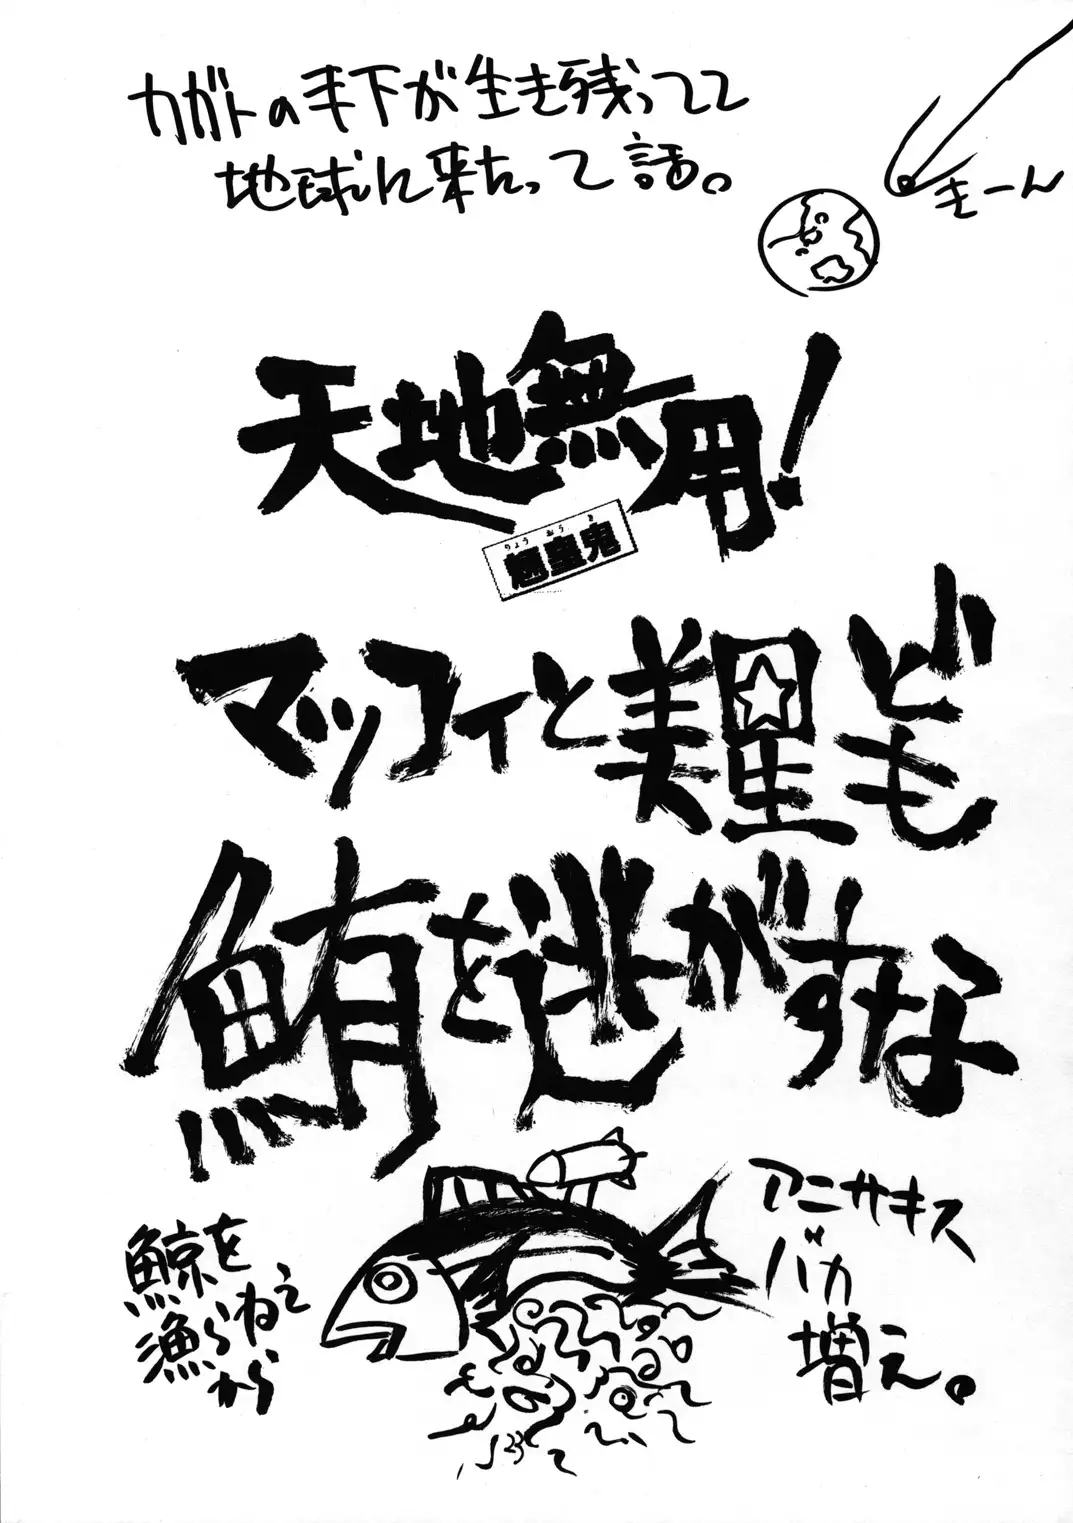 カガトの手下が生き残ってて
地球に来たって話。
きーん
天地無用!
りょうおうき
魎皇鬼
マッコイと美星ど
も
鮪を逃がすな
アニサキス
バカ
増え。
鯨を
漁らねえ
から